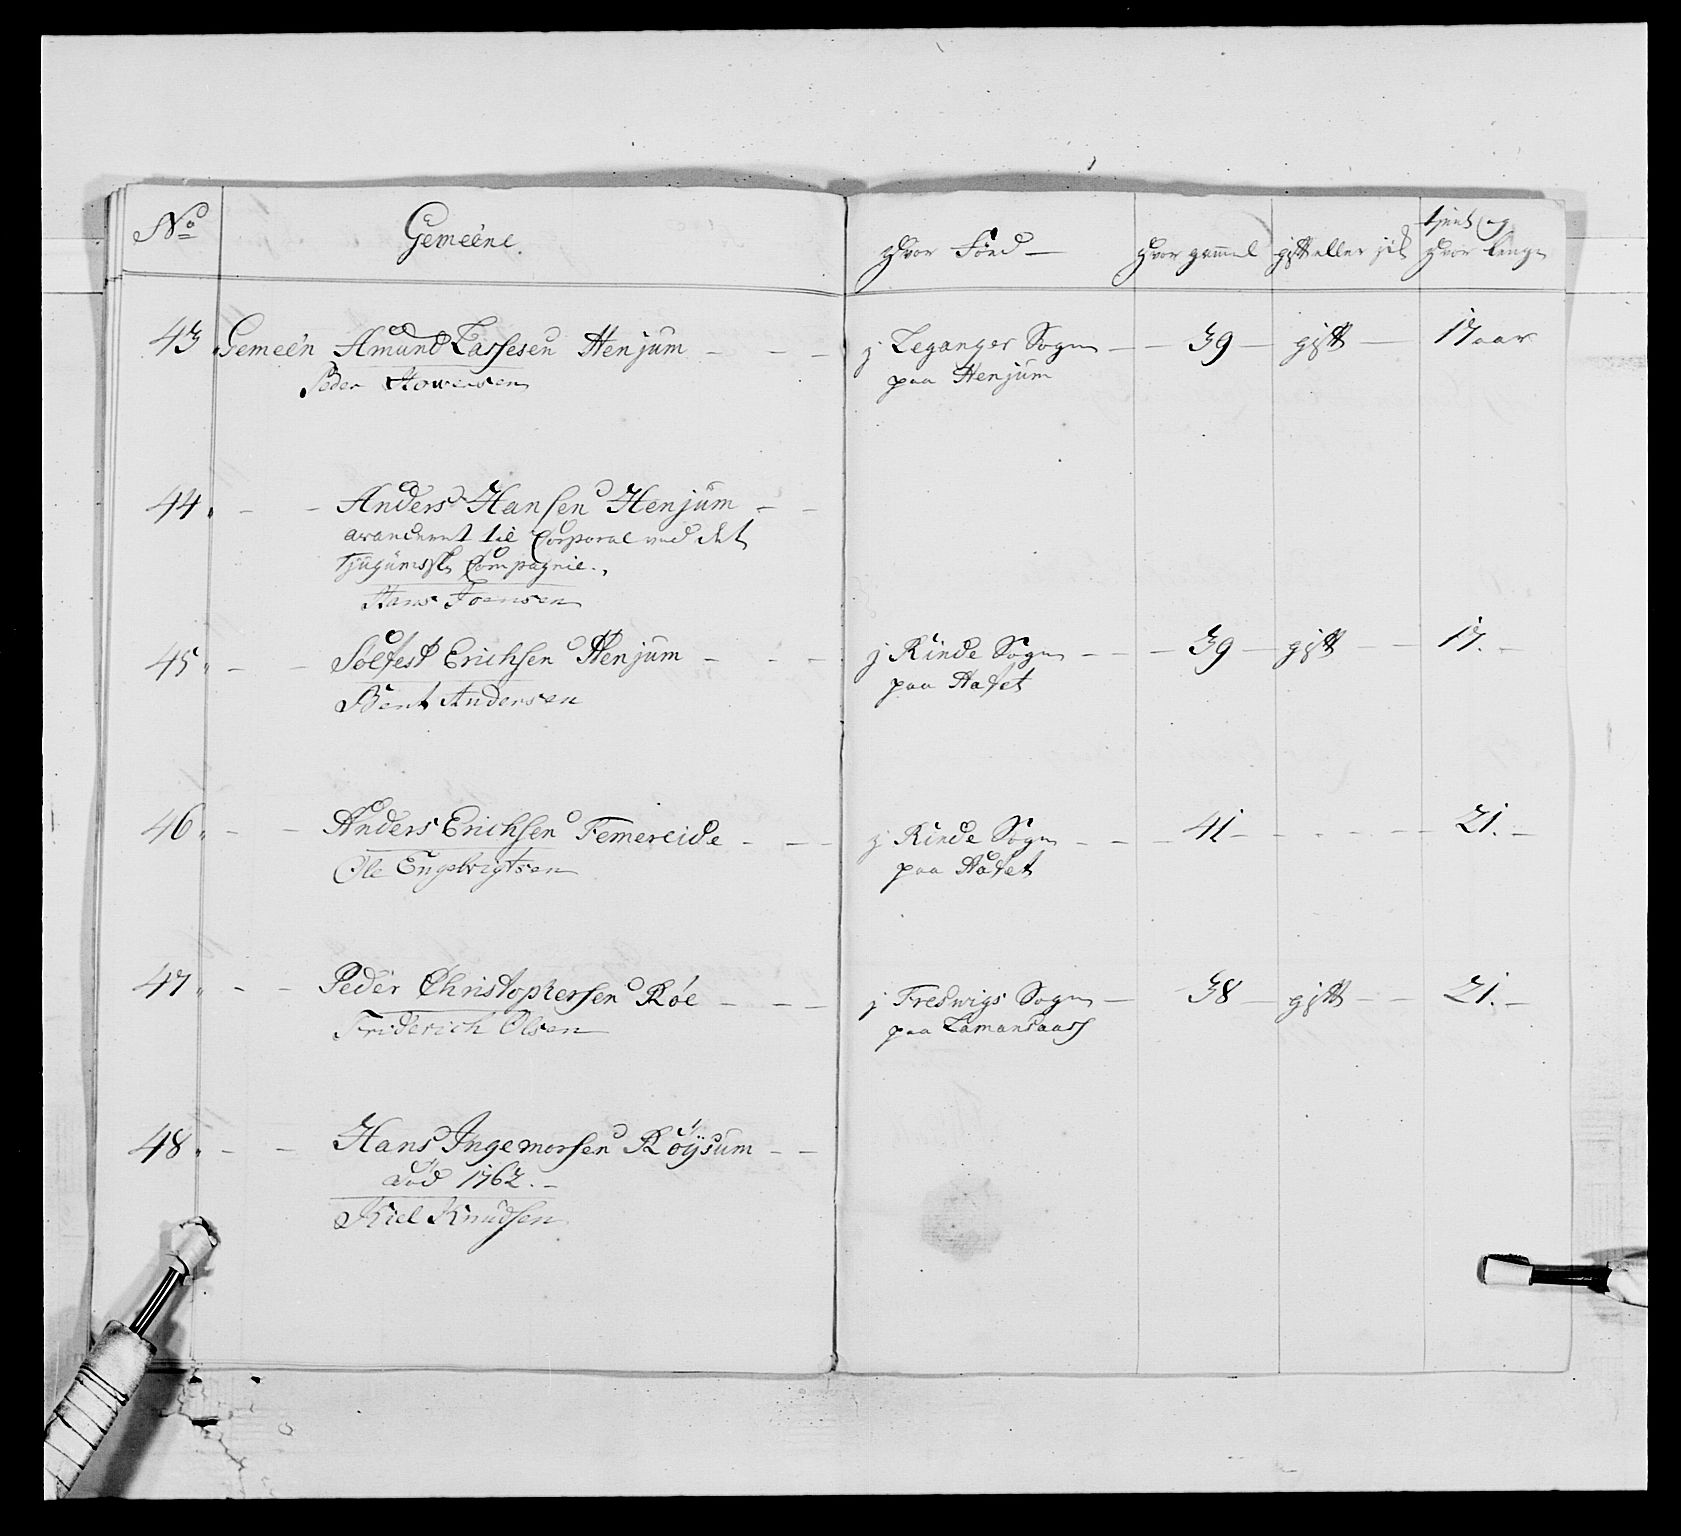 No Gemeene. Hvor Fød Hvor gammel gift eller ej tient og Hvor længe
43 Gemeen Amund Lassesen Henjum j Leganger Sogn 39 gift 17 aar
Peder paa Henjum
44 Anders Hansen Henjum
avanceret til Corporal ved det
Compagnie.
Hans Joensen
45 Solfest Erichsen Henjum j Rinde Sogn 39 gift 17.
Bent Andersen paa
46 Anders Erichsen Femereide j Rinde Sogn 41 21.
Ole Engebrigtsen paa
47 Peder Christophersen Röe j Fredwigs Sogn 38 gift 21.
Friderich Olsen paa
48 Hans Ingemorsen Röÿsum
död 1762.
Kiel Knudsen